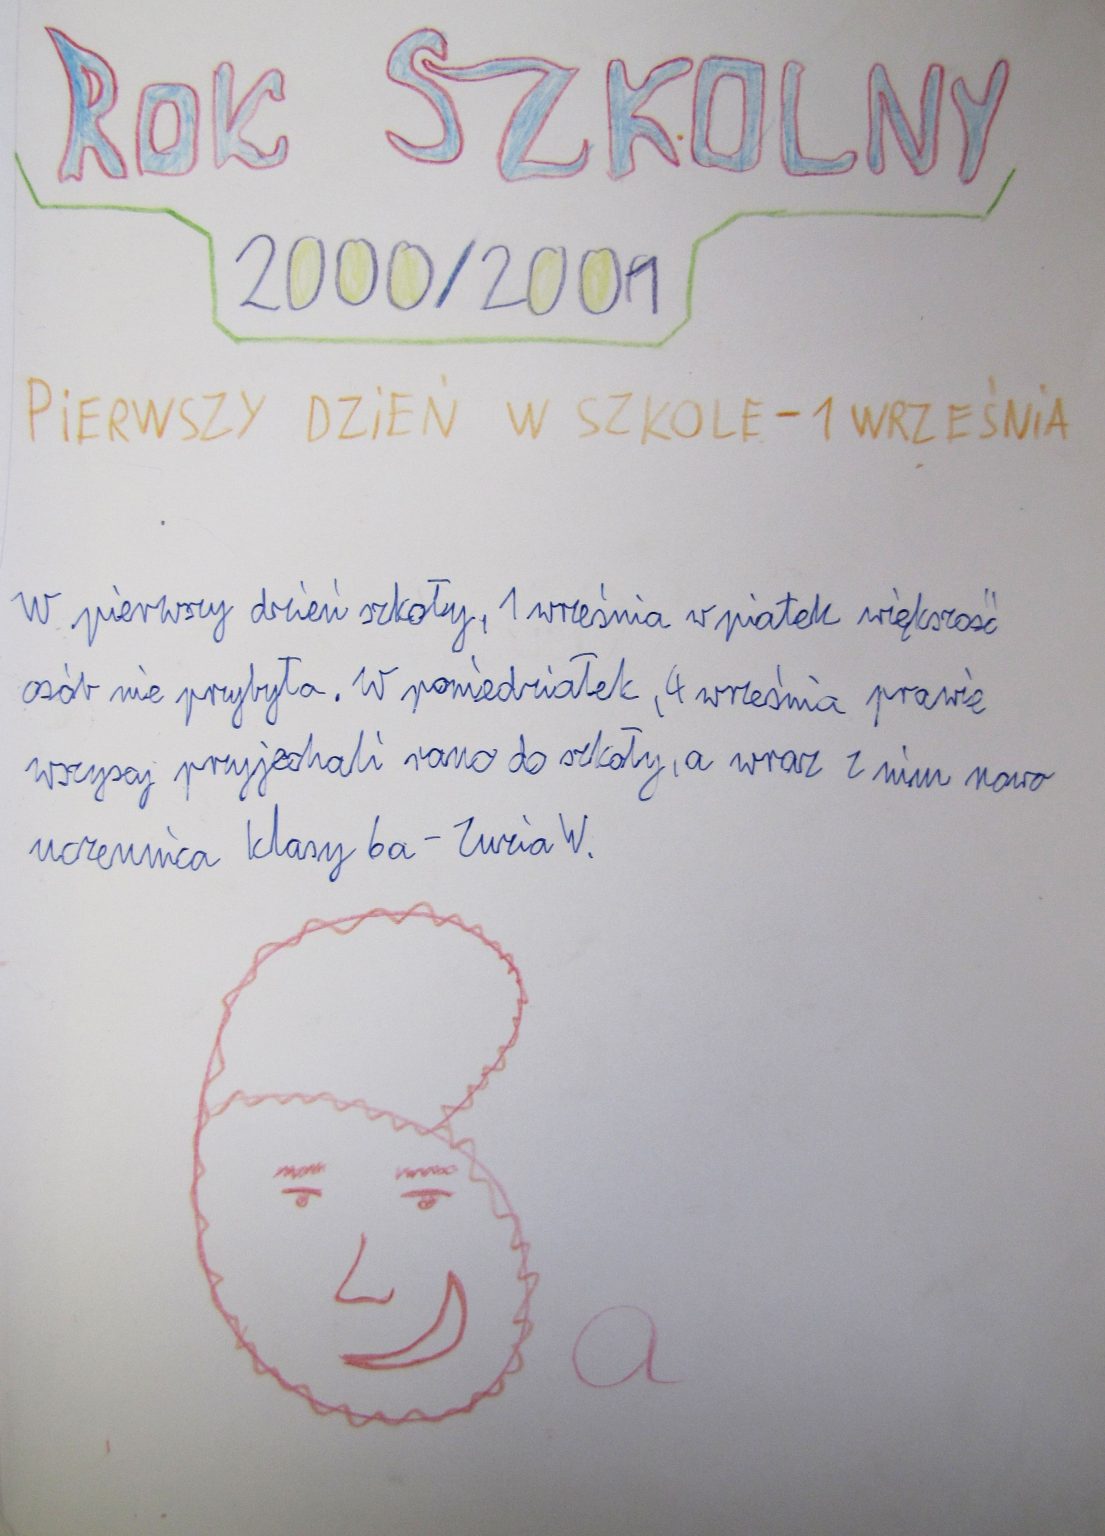 ROK SZKOLNY
2000/2001
PIERWSZY DZIEŃ W SZKOLE - 1 WRZEŚNIA
W pierwszy dzień szkoły, 1 września w piatek większość
osób nie przybyła. W poniedziałek, 4 września prawie
wszyscy przyjechali rano do szkoły, a wraz z nimi nowa
uczennica klasy 6a - Zuzia W.
6 a